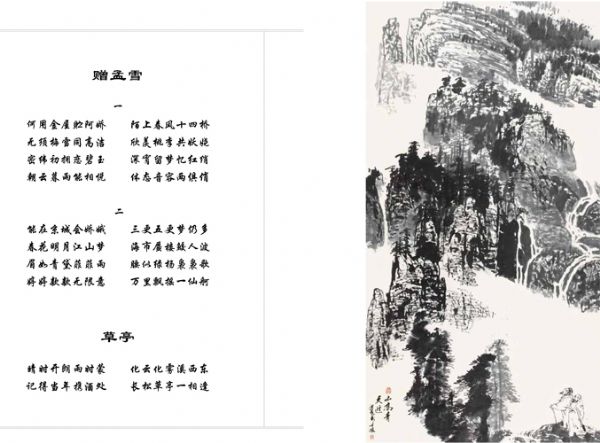 赠孟雪
一
何用金屋贮阿娇 陌上春风十四桥
无须梅雪同高洁 欣羡桃李共妖娆
密帏初拥恋碧玉 深宵留梦忆红绡
朝云暮雨能相悦 体态音容两俱俏
二
能在京城会娇娥 三更五更梦仍多
春花明月江山梦 海市蜃楼鼓人波
眉如青黛菲菲雨 腰似绿杨袅袅歌
婷婷款款无限意 万里飘摇一仙舸
草亭
晴时开朗雨时蒙 化云化雾溪西东
记得当年携酒处 长松草亭一相逢